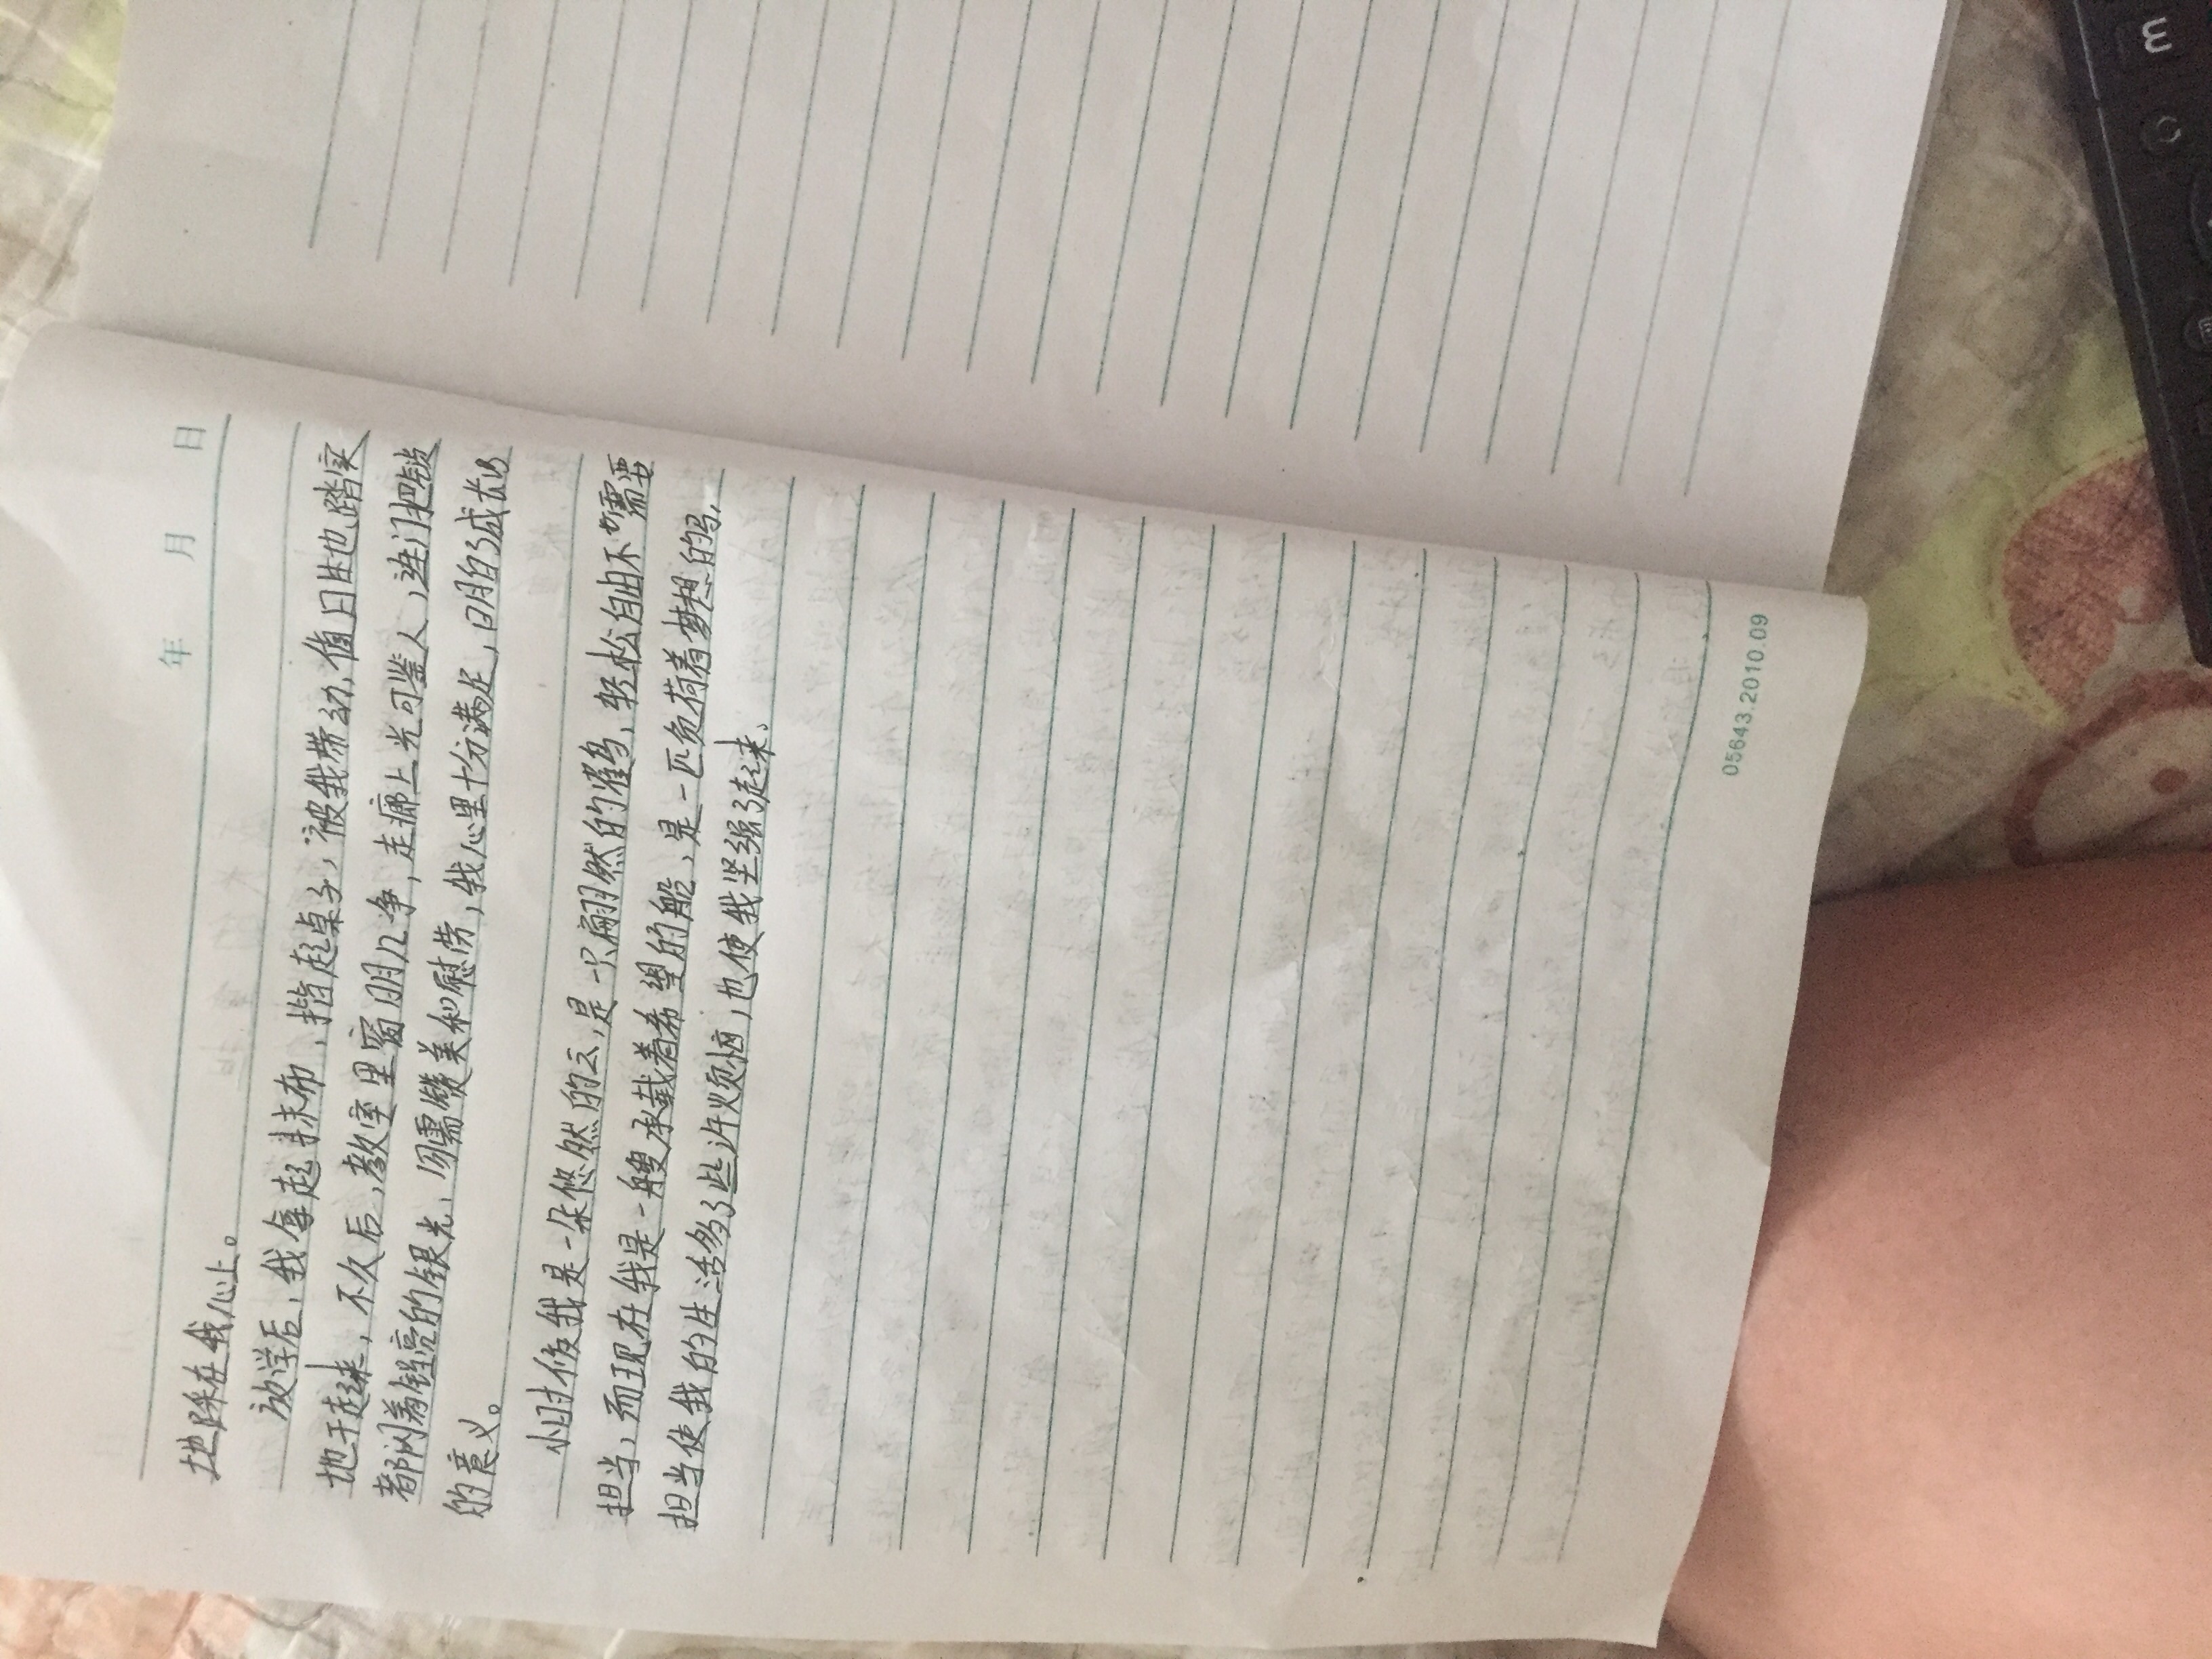 年 月 日
地踩在我心上。
放学后,我拿起抹布,揩起桌子,被我带动,值日生也踏实
地干起来,不久后,教室里窗明几净,走廊上光可鉴人,连门把锁
都闪着锃亮的银光,毋需赞美和慰劳,我心里十分满足,明白了成长
的意义。
小时候我是一朵悠然的云,是一只翩然的鹤,轻松自由不需要
担当,而现在我是一艘承载着希望的船,是一匹负荷着梦想的马,
担当使我的生活多了些许烦恼,也使我坚强了起来。
05643.2010.09